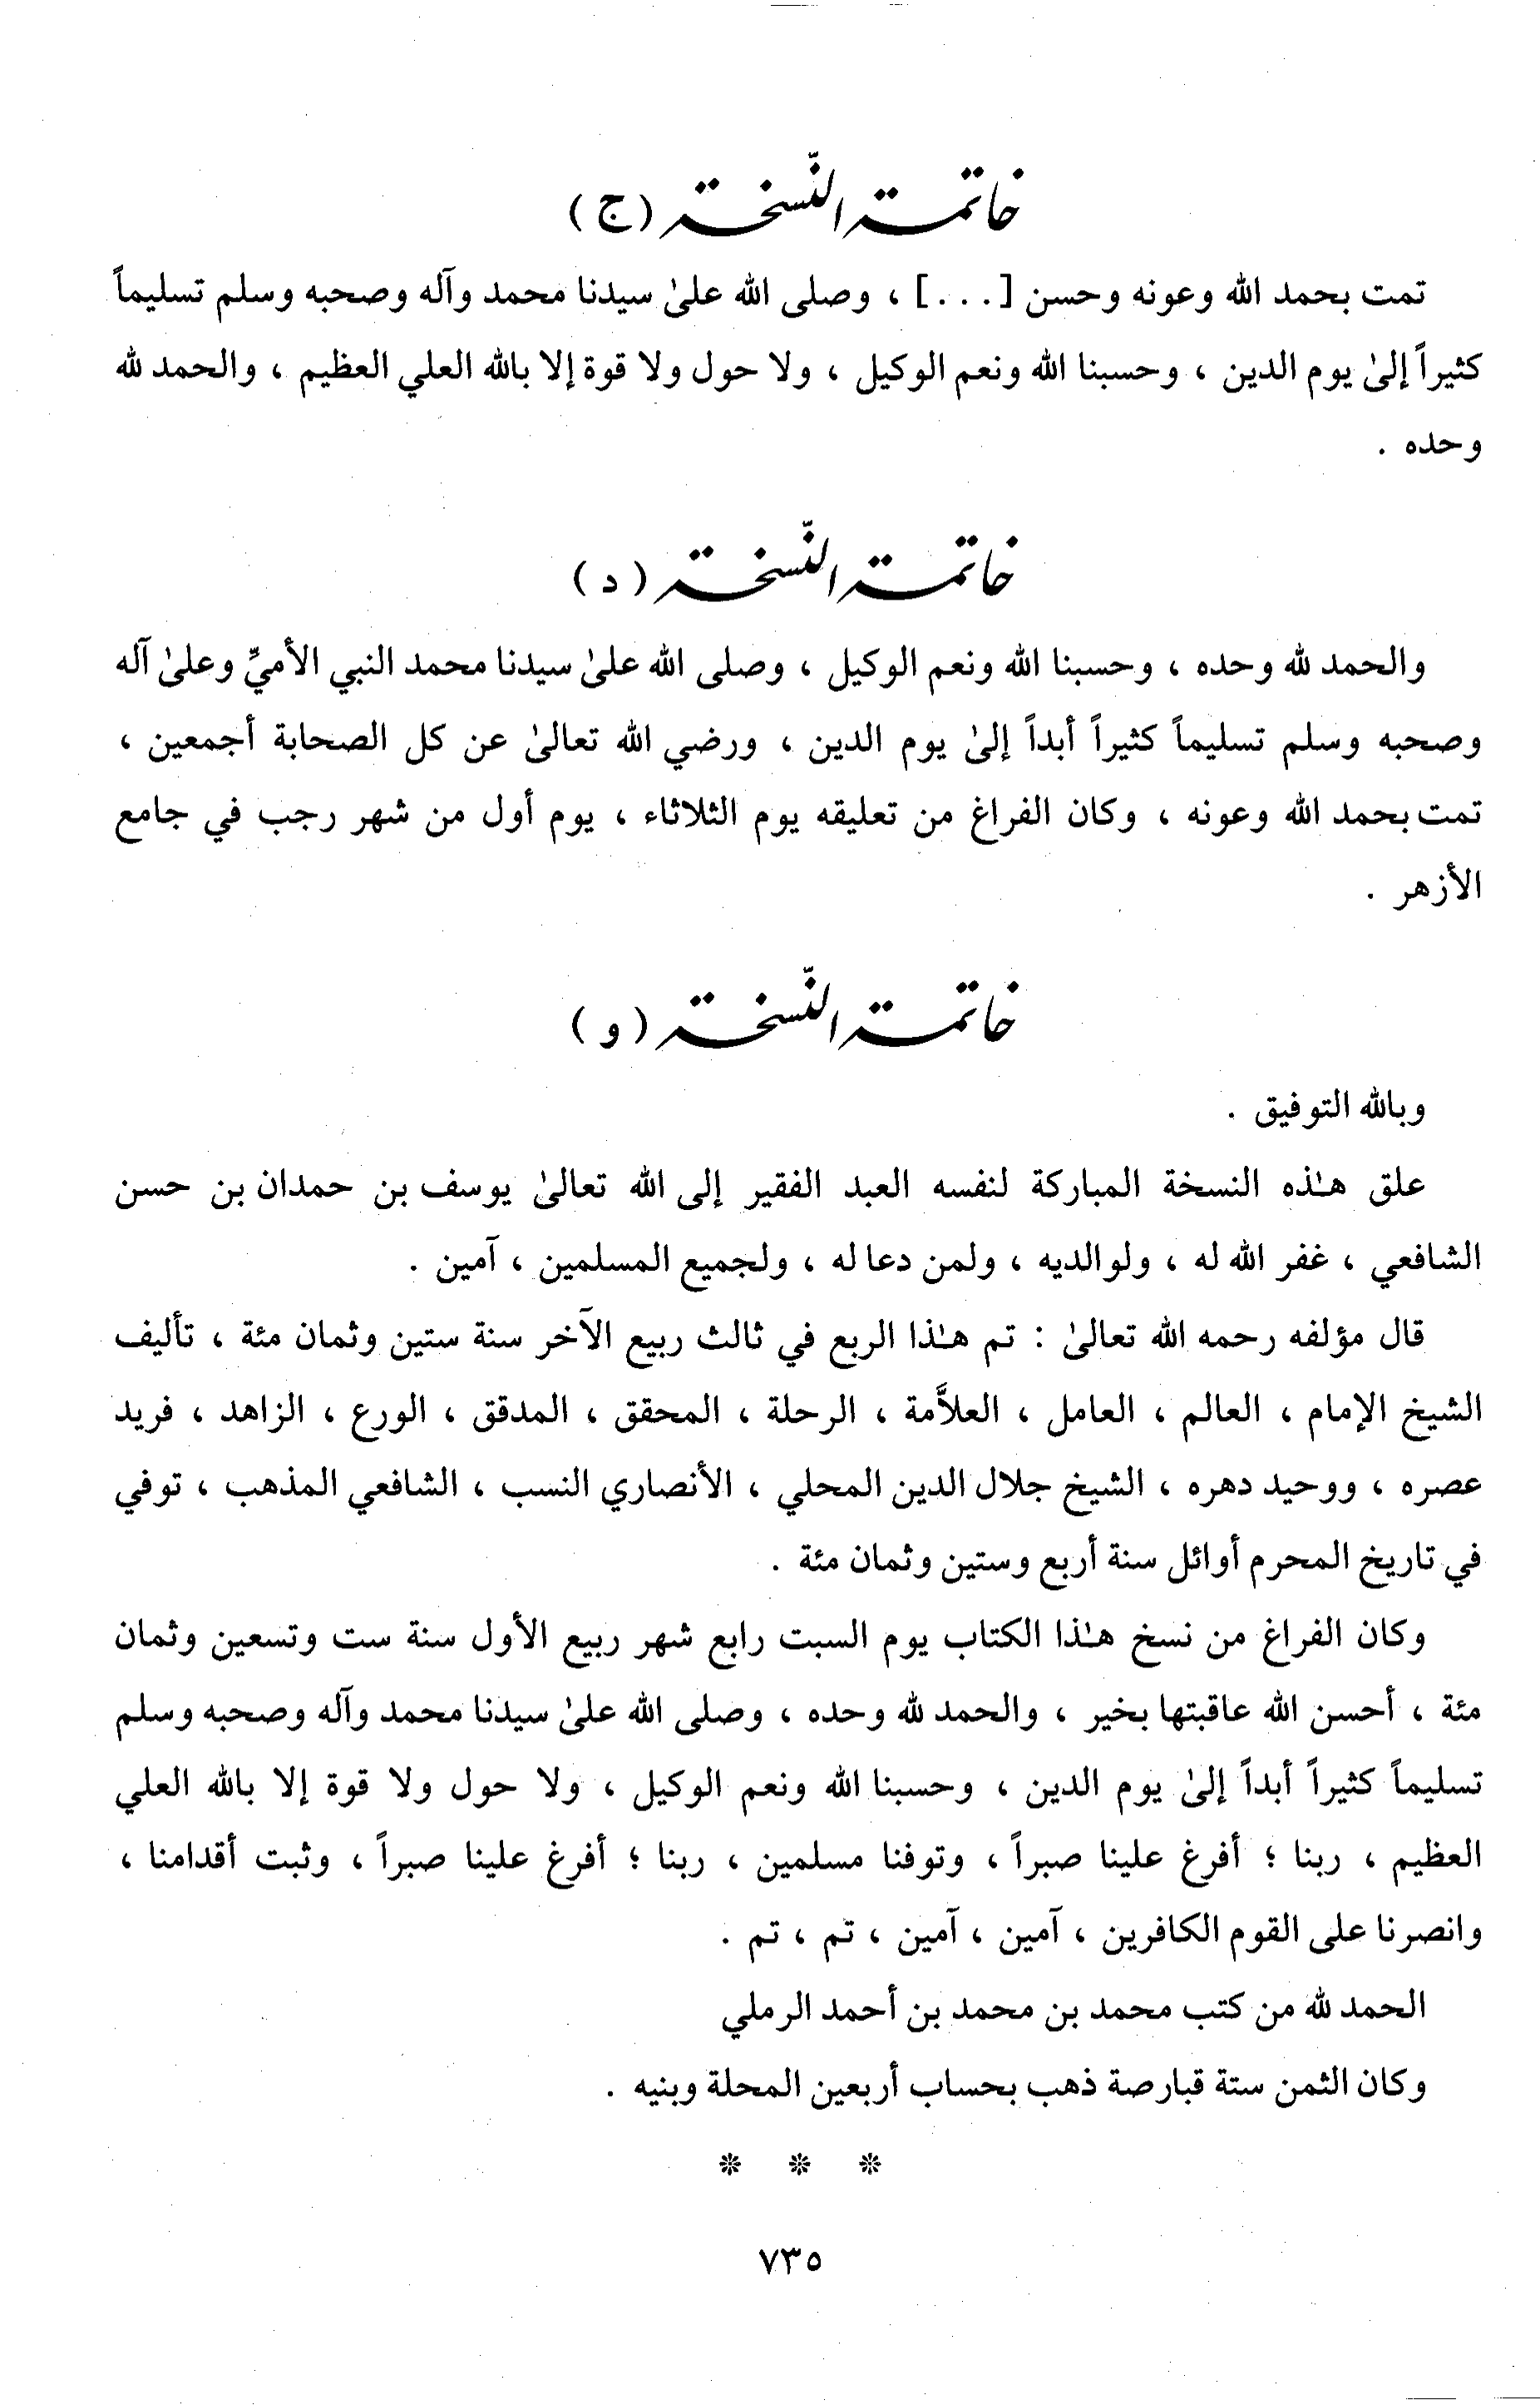 خاتمة النّسخة (ج)
تمت بحمد الله وعونه وحسن [...] ، وصلى الله علىٰ سيدنا محمد وآله وصحبه وسلم تسليماً
كثيراً إلىٰ يوم الدين ، وحسبنا الله ونعم الوكيل ، ولا حول ولا قوة إلا بالله العلي العظيم ، والحمد لله
وحده .
خاتمة النّسخة (د)
والحمد لله وحده ، وحسبنا الله ونعم الوكيل ، وصلى الله علىٰ سيدنا محمد النبي الأميِّ وعلىٰ آله
وصحبه وسلم تسليماً كثيراً أبداً إلىٰ يوم الدين ، ورضي الله تعالىٰ عن كل الصحابة أجمعين ،
تمت بحمد الله وعونه ، وكان الفراغ من تعليقه يوم الثلاثاء ، يوم أول من شهر رجب في جامع
الأزهر .
خاتمة النّسخة (و)
وبالله التوفيق .
علق هـٰذه النسخة المباركة لنفسه العبد الفقير إلى الله تعالىٰ يوسف بن حمدان بن حسن
الشافعي ، غفر الله له ، ولوالديه ، ولمن دعا له ، ولجميع المسلمين ، آمين .
قال مؤلفه رحمه الله تعالىٰ : تم هـٰذا الربع في ثالث ربيع الآخر سنة ستين وثمان مئة ، تأليف
الشيخ الإمام ، العالم ، العامل ، العلاَّمة ، الرحلة ، المحقق ، المدقق ، الورع ، الزاهد ، فريد
عصره ، ووحيد دهره ، الشيخ جلال الدين المحلي ، الأنصاري النسب ، الشافعي المذهب ، توفي
في تاريخ المحرم أوائل سنة أربع وستين وثمان مئة .
وكان الفراغ من نسخ هـٰذا الكتاب يوم السبت رابع شهر ربيع الأول سنة ست وتسعين وثمان
مئة ، أحسن الله عاقبتها بخير ، والحمد لله وحده ، وصلى الله علىٰ سيدنا محمد وآله وصحبه وسلم
تسليماً كثيراً أبداً إلىٰ يوم الدين ، وحسبنا الله ونعم الوكيل ، ولا حول ولا قوة إلا بالله العلي
العظيم ، ربنا ؛ أفرغ علينا صبراً ، وتوفنا مسلمين ، ربنا ؛ أفرغ علينا صبراً ، وثبت أقدامنا ،
وانصرنا على القوم الكافرين ، آمين ، آمين ، تم ، تم .
الحمد لله من كتب محمد بن محمد بن أحمد الرملي
وكان الثمن ستة قبارصة ذهب بحساب أربعين المحلة وبنيه .
* * *
٧٣٥